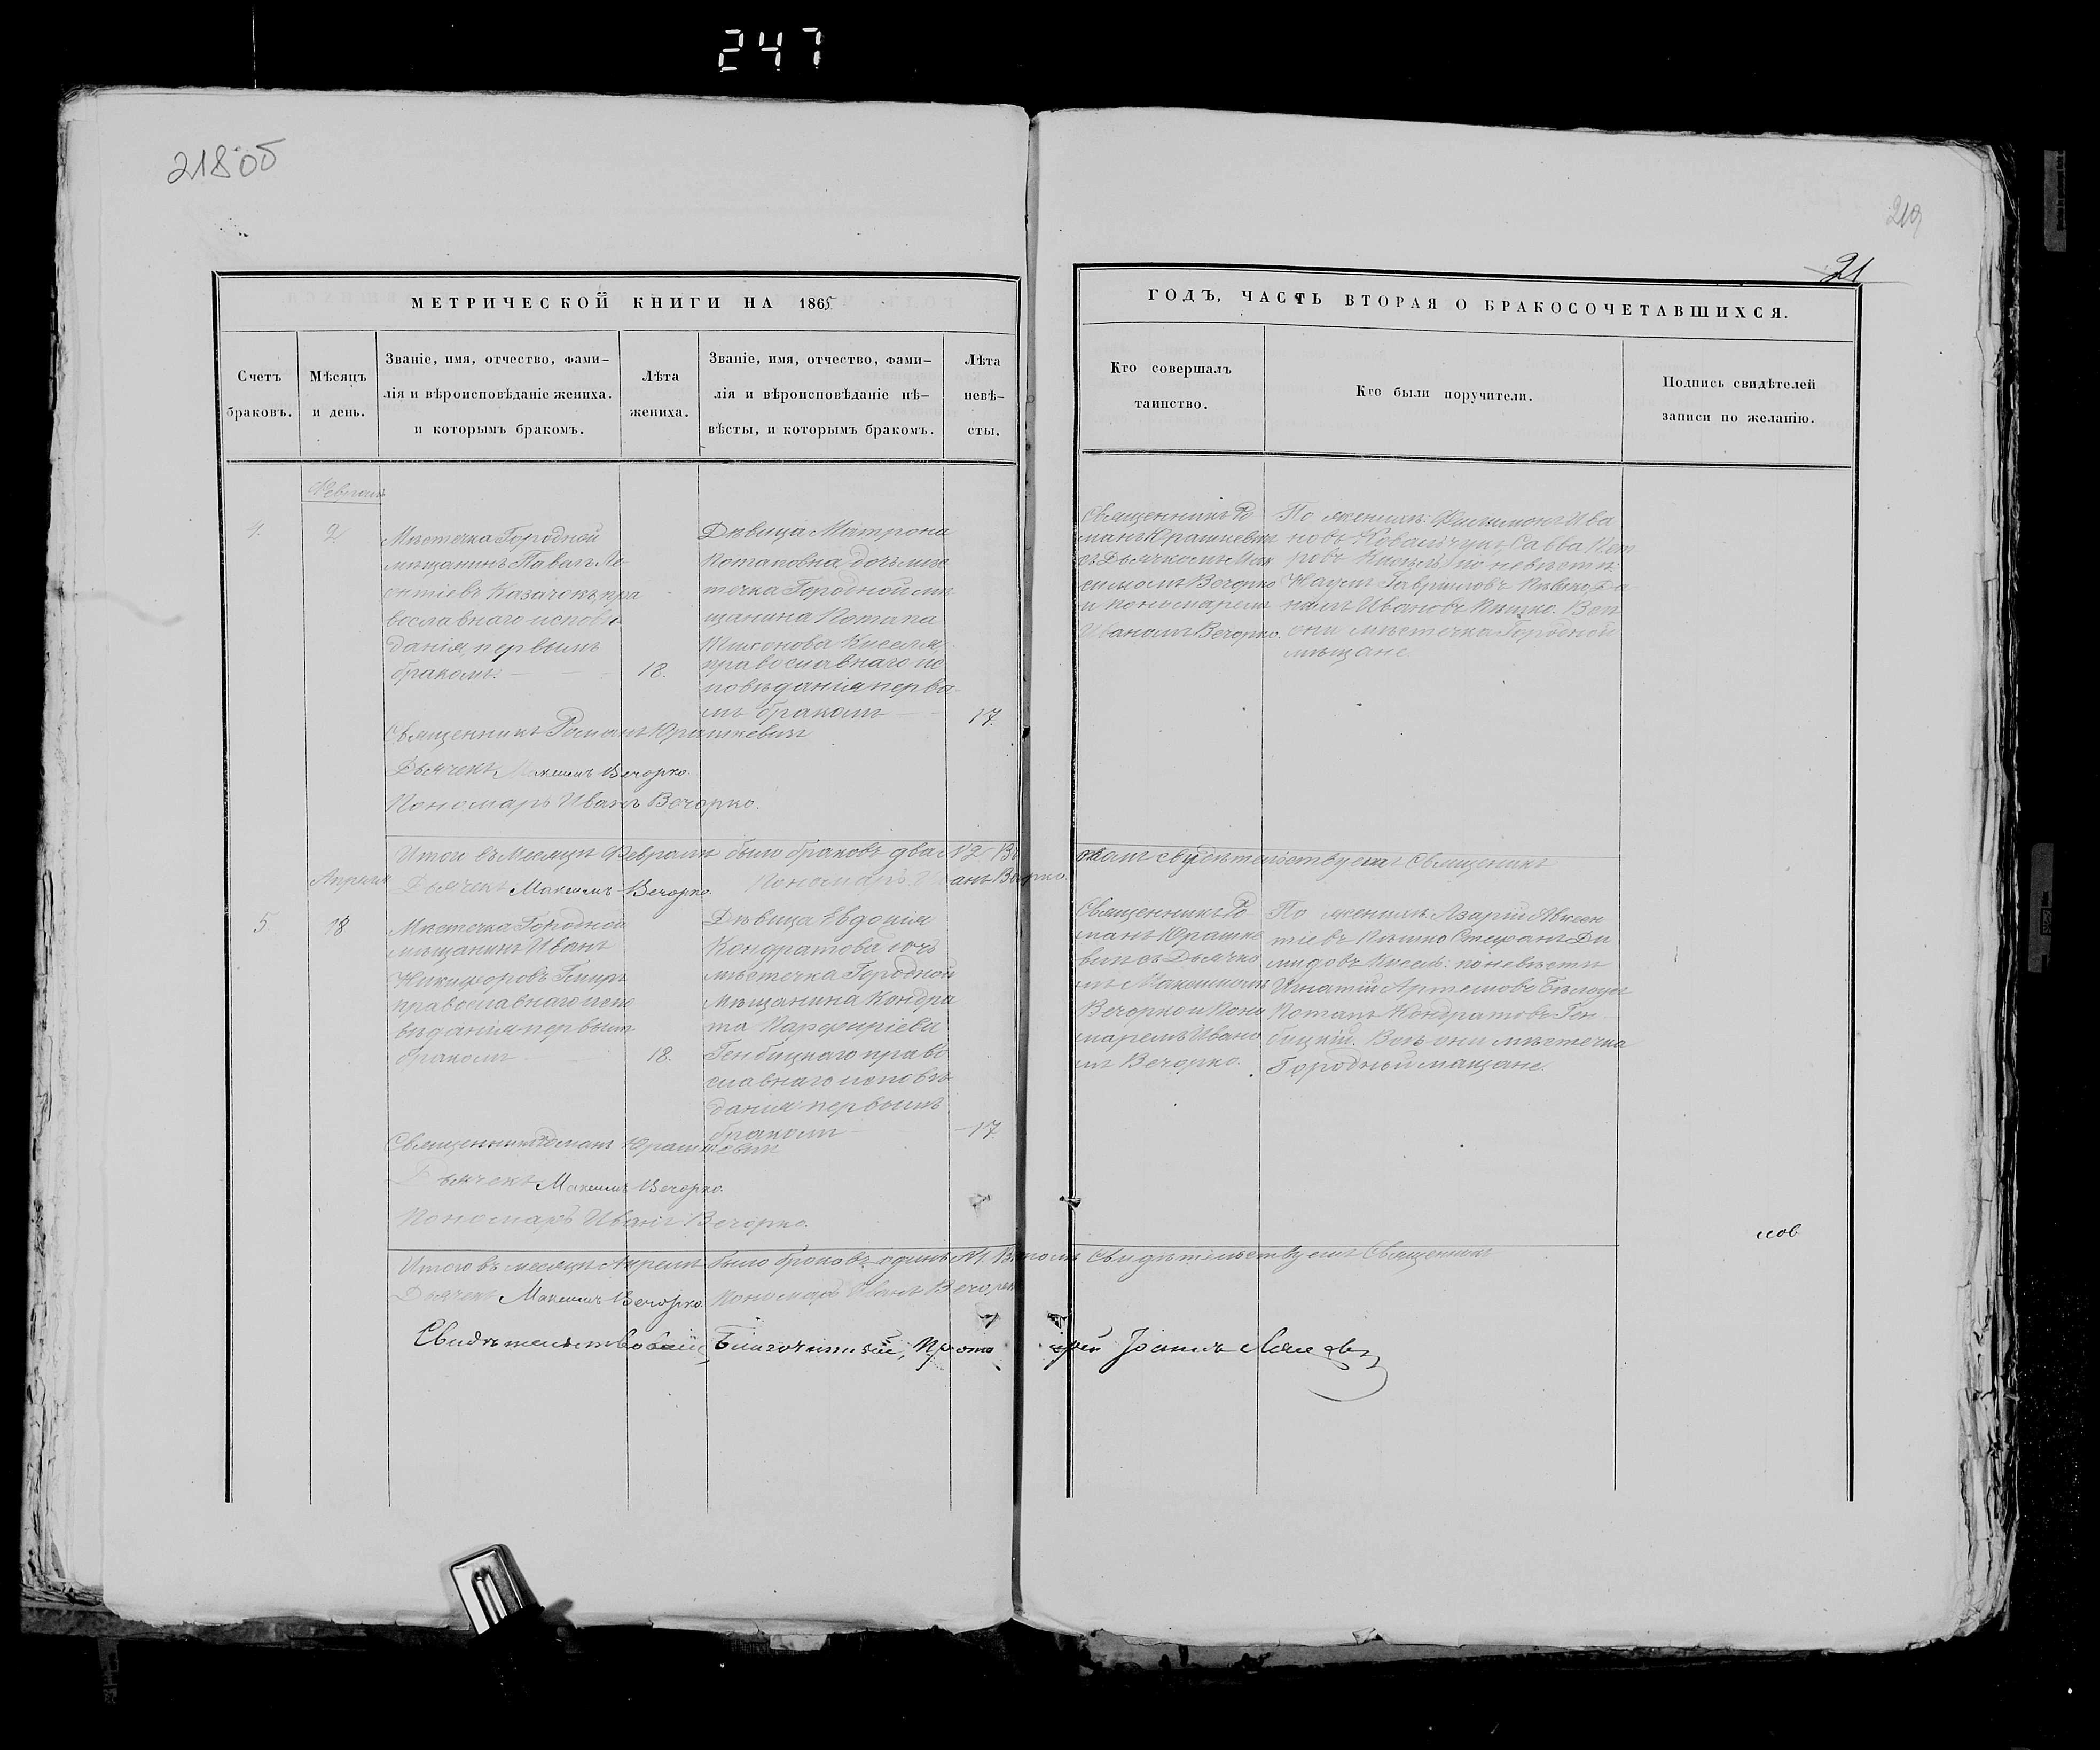 247
218 об
219
21
МЕТРИЧЕСКОЙ КНИГИ НА 1865
ГОДЪ, ЧАСТЬ ВТОРАЯ О БРАКОСОЧЕТАВШИХСЯ.
Счетъ
браковъ.
Мѣсяцъ
и день.
Званіе, имя, отчество, фами-
лія и вѣроисповѣданіе жениха.
и которымъ бракомъ.
Лѣта
жениха.
Званіе, имя, отчество, фами-
лія и вѣроисповѣданіе нѣ-
вѣсты, и которымъ бракомъ.
Лѣта
невѣ-
сты.
Кто совершалъ
таинство.
Кто были поручители.
Подпись свидѣтелей
записи по желанію.
Февраль
4.
2
Мѣстечка Городной
мѣщанинъ Павелъ
Казачекъ, пра
вославнаго исповѣ
данія, первымъ
бракомъ.
18.
Дѣвица Матрона
Потаповна, дочь мѣс
течка Городной мѣ
щанина Потапа
Тихонова Киселя,
православнаго ис
повѣданія перво
мъ бракомъ
17.
Священникъ Ро
манъ Юрашкевичъ
съ Дьячкомъ Мак
симомъ Вечорко
и пономаремъ
Иваномъ Вечорко.
По женихѣ: Филимонъ Ива
новъ Ковальчукъ, Савва
Кисель, по невѣстѣ:
Наумъ Гавриловъ Пѣвко, Да
нилъ Ивановъ Пѣшко. Всѣ
они мѣстечка Городной
мѣщане.
Священникъ Романъ Юрашкевичъ
Дьячекъ Максимъ Вечорко.
Пономарь Иванъ Вечорко.
Итого въ Месяцѣ Февралѣ было браковъ два №2 Въ
чемъ свидѣтельствуемъ Священникъ
Дьячекъ Максимъ Вечорко. Пономарь Иванъ Вечорко.
Апреля
5.
18
Мѣстечка Городной
мѣщанинъ Иванъ
Никифоровъ
православнаго испо
вѣданія первымъ
бракомъ
18.
Дѣвица Евдокія
Кондратова дочь
мѣстечка Городной
Мѣщанина Кондра
та Парфиріева
Генбицкаго право
славнаго исповѣ
данія первымъ
бракомъ
17.
Священникъ Ро
манъ Юрашке
вичъ съ Дьячко
мъ Максимомъ
Вечоркой и Поно
маремъ Ивано
мъ Вечорко.
По женихѣ: Азарій Авксен
тіевъ Пѣшко Стефанъ Ди
мидовъ Кисель: по невѣсте
Игнатій Артемовъ
Потапъ Кондратовъ Ген
бицкій. Всѣ они мѣстечка
Городной мѣщане.
Священникъ Романъ Юрашкевичъ
Дьячекъ Максимъ Вечорко.
Пономарь Иванъ Вечорко.
Итого въ месяцѣ Апрелѣ было браковъ одинъ №1. Въ чемъ Свидѣтельствуемъ Священникъ
Дьячекъ Максимъ Вечорко. Пономарь Иванъ Вечорко
Свидѣтельствовалъ Благочинный, Протоіерей Іоаннъ